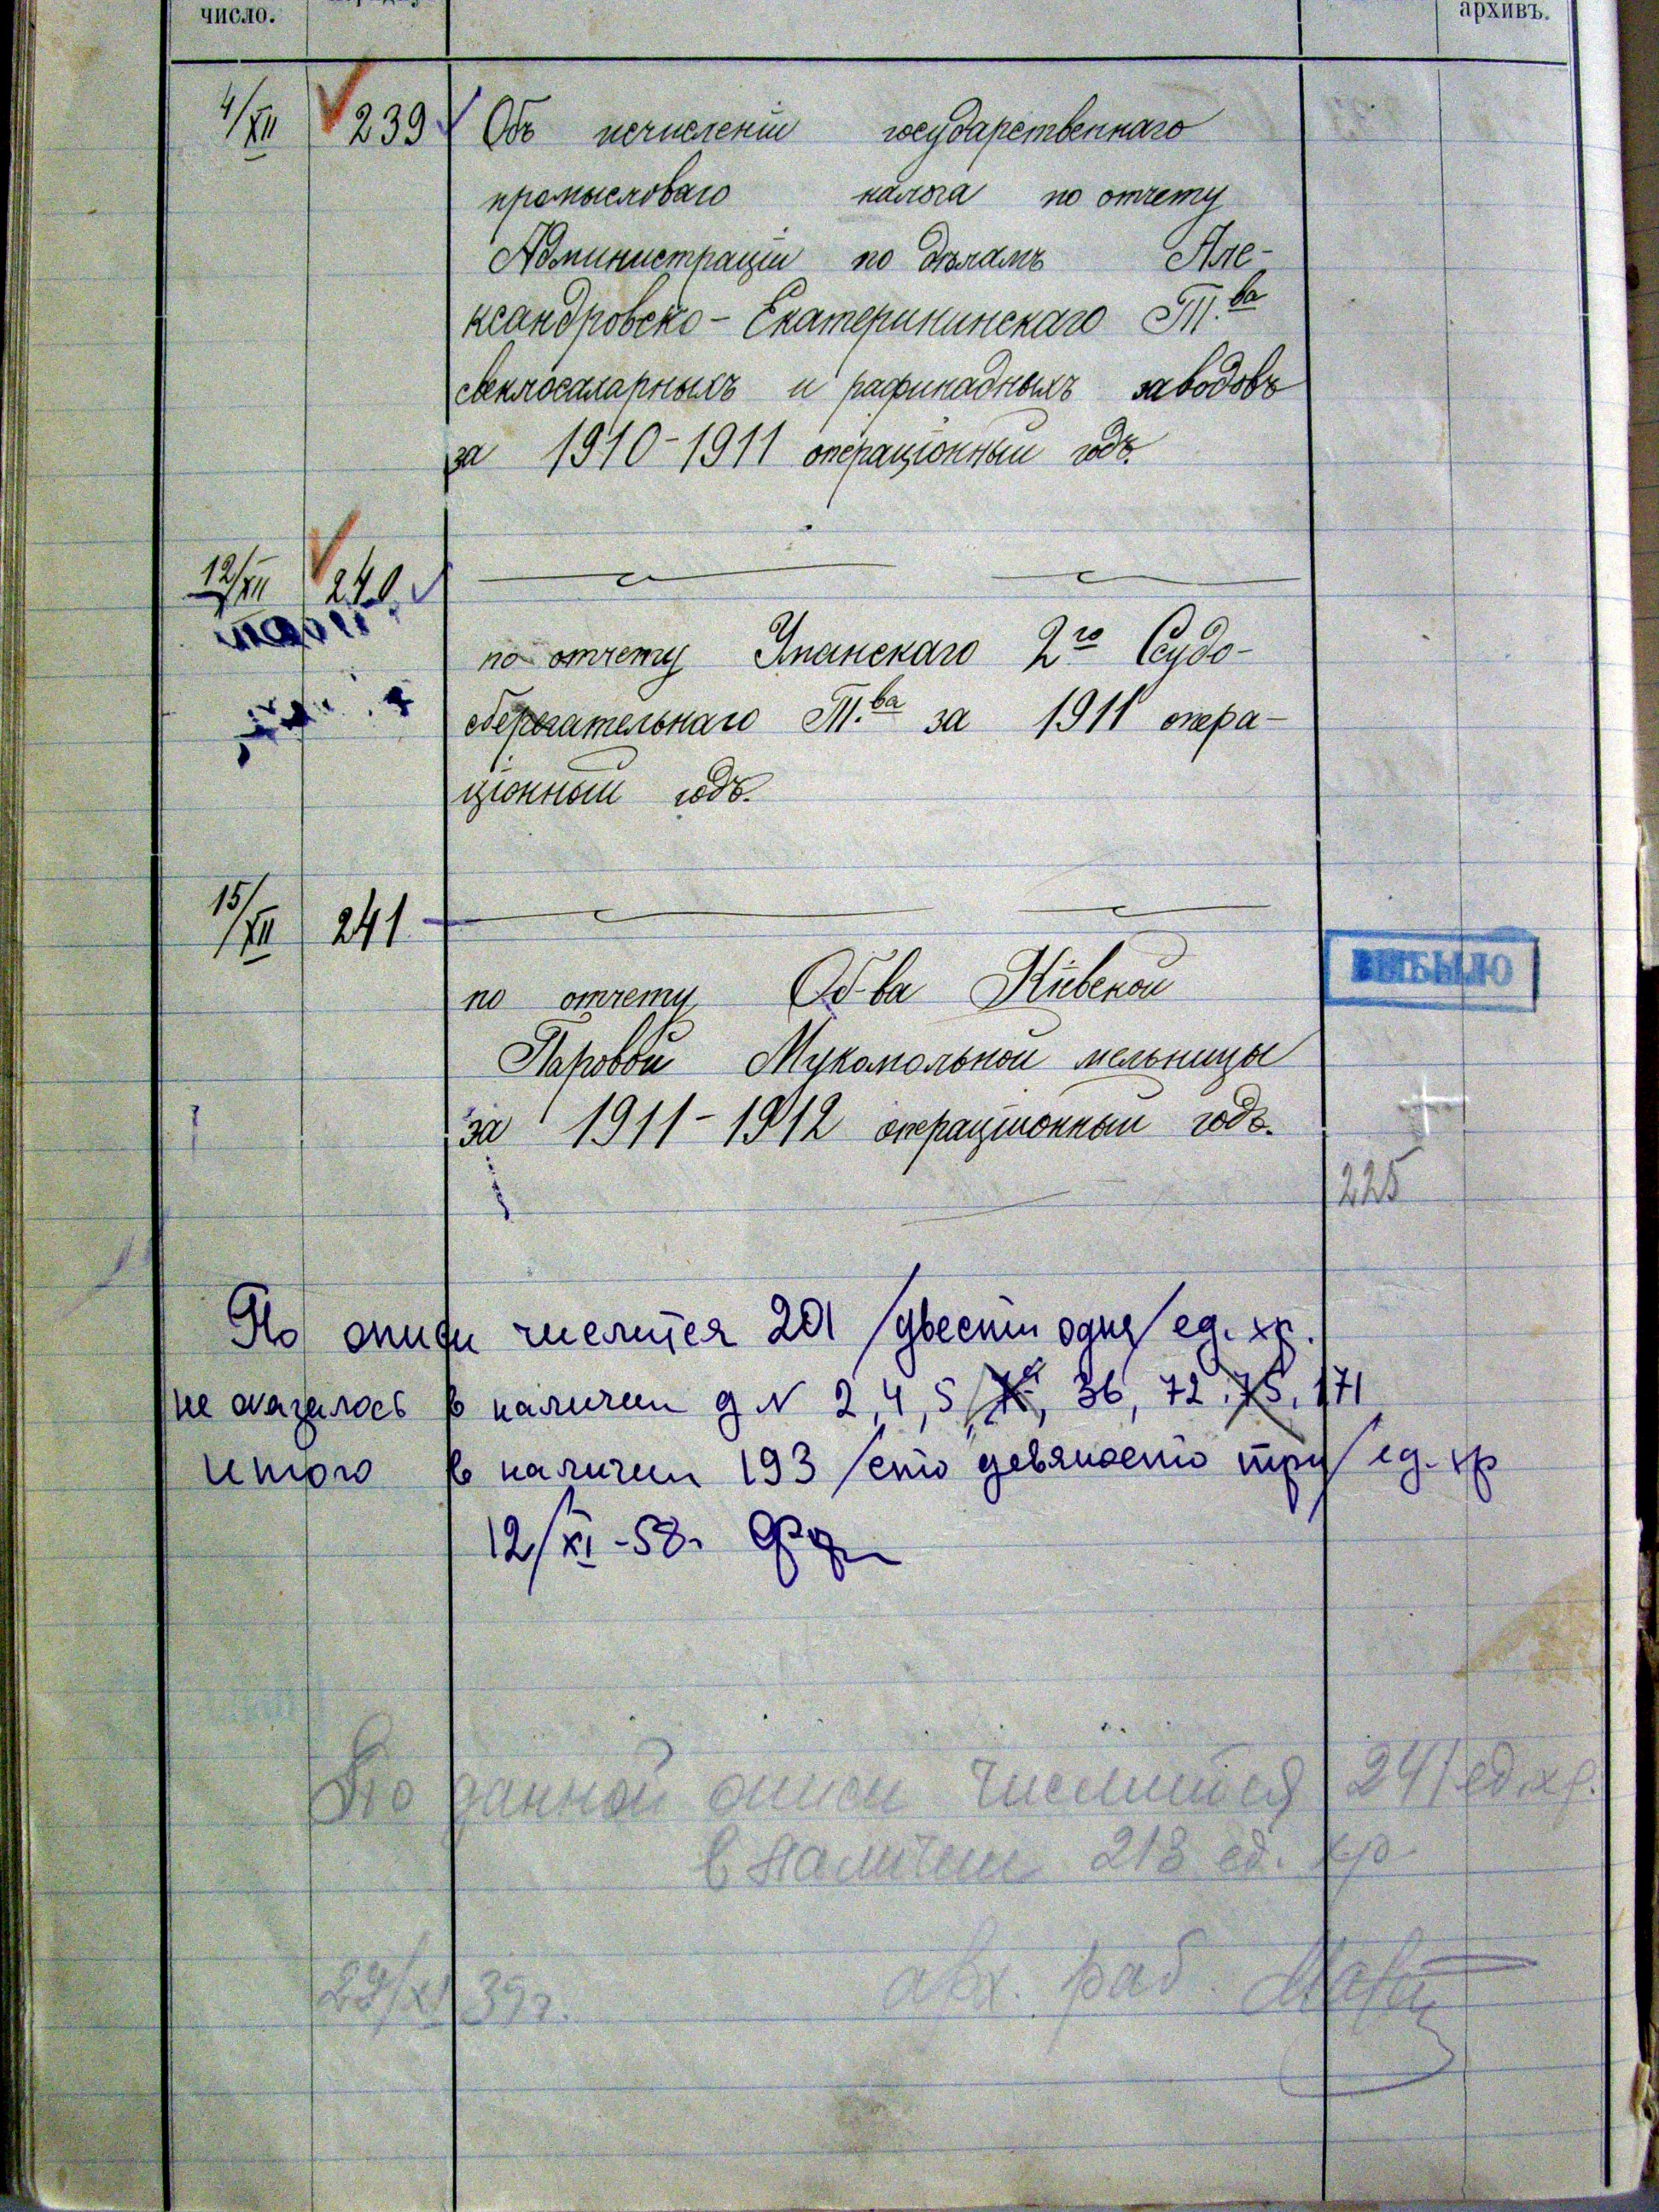 число.
архивъ.
4/XII 239 Объ исчисленіи государственнаго
промысловаго налога по отчету
Администраціи по дѣламъ Але-
ксандровско-Екатерининскаго Т.ва
свеклосахарныхъ и рафинадныхъ заводовъ
за 1910-1911 операціонный годъ.
12/XII 240
по отчету Уманскаго 2го Ссудо-
сберегательнаго Т.ва за 1911 опера-
ціонный годъ.
15/XII 241
ВЫБЫЛО
по отчету Об-ва Кіевской
Паровой Мукомольной мельницы
за 1911-1912 операціонный годъ.
225
По описи числится 201 /двести одна/ ед. хр.
не оказалось в наличии д N 2, 4, 5, 36, 72, 75, 171
итого в наличии 193 /сто девяносто три/ ед. хр
12/XI-58г
По данной описи числится 241 ед. хр.
в наличии 218 ед. хр
29/XI 39г. арх. раб.